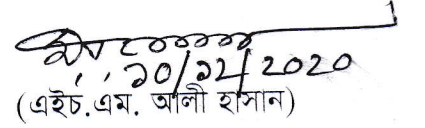 ১০/১২/2020
(এইচ.এম. আলী হাসান)